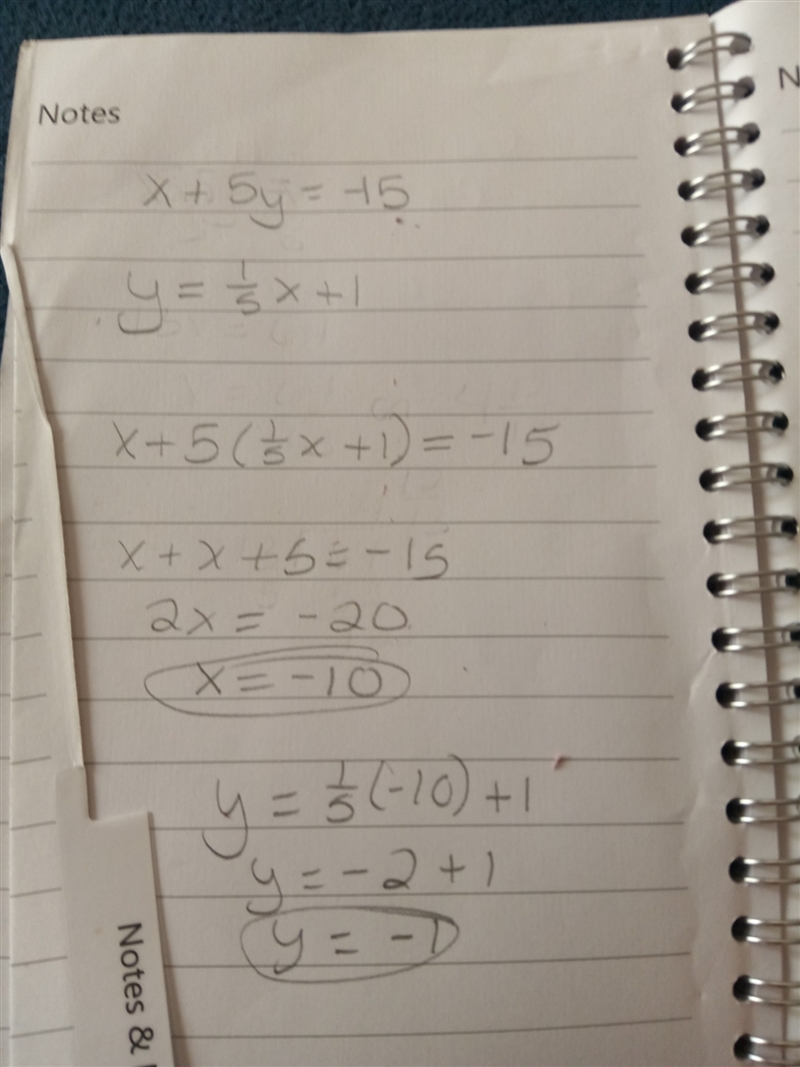 Notes
x + 5y = -15
y = 1/5 x + 1
x + 5 (1/5 x + 1) = -15
x + x + 5 = -15
2x = -20
x = -10
y = 1/5 (-10) + 1
y = -2 + 1
y = -1
Notes &
N